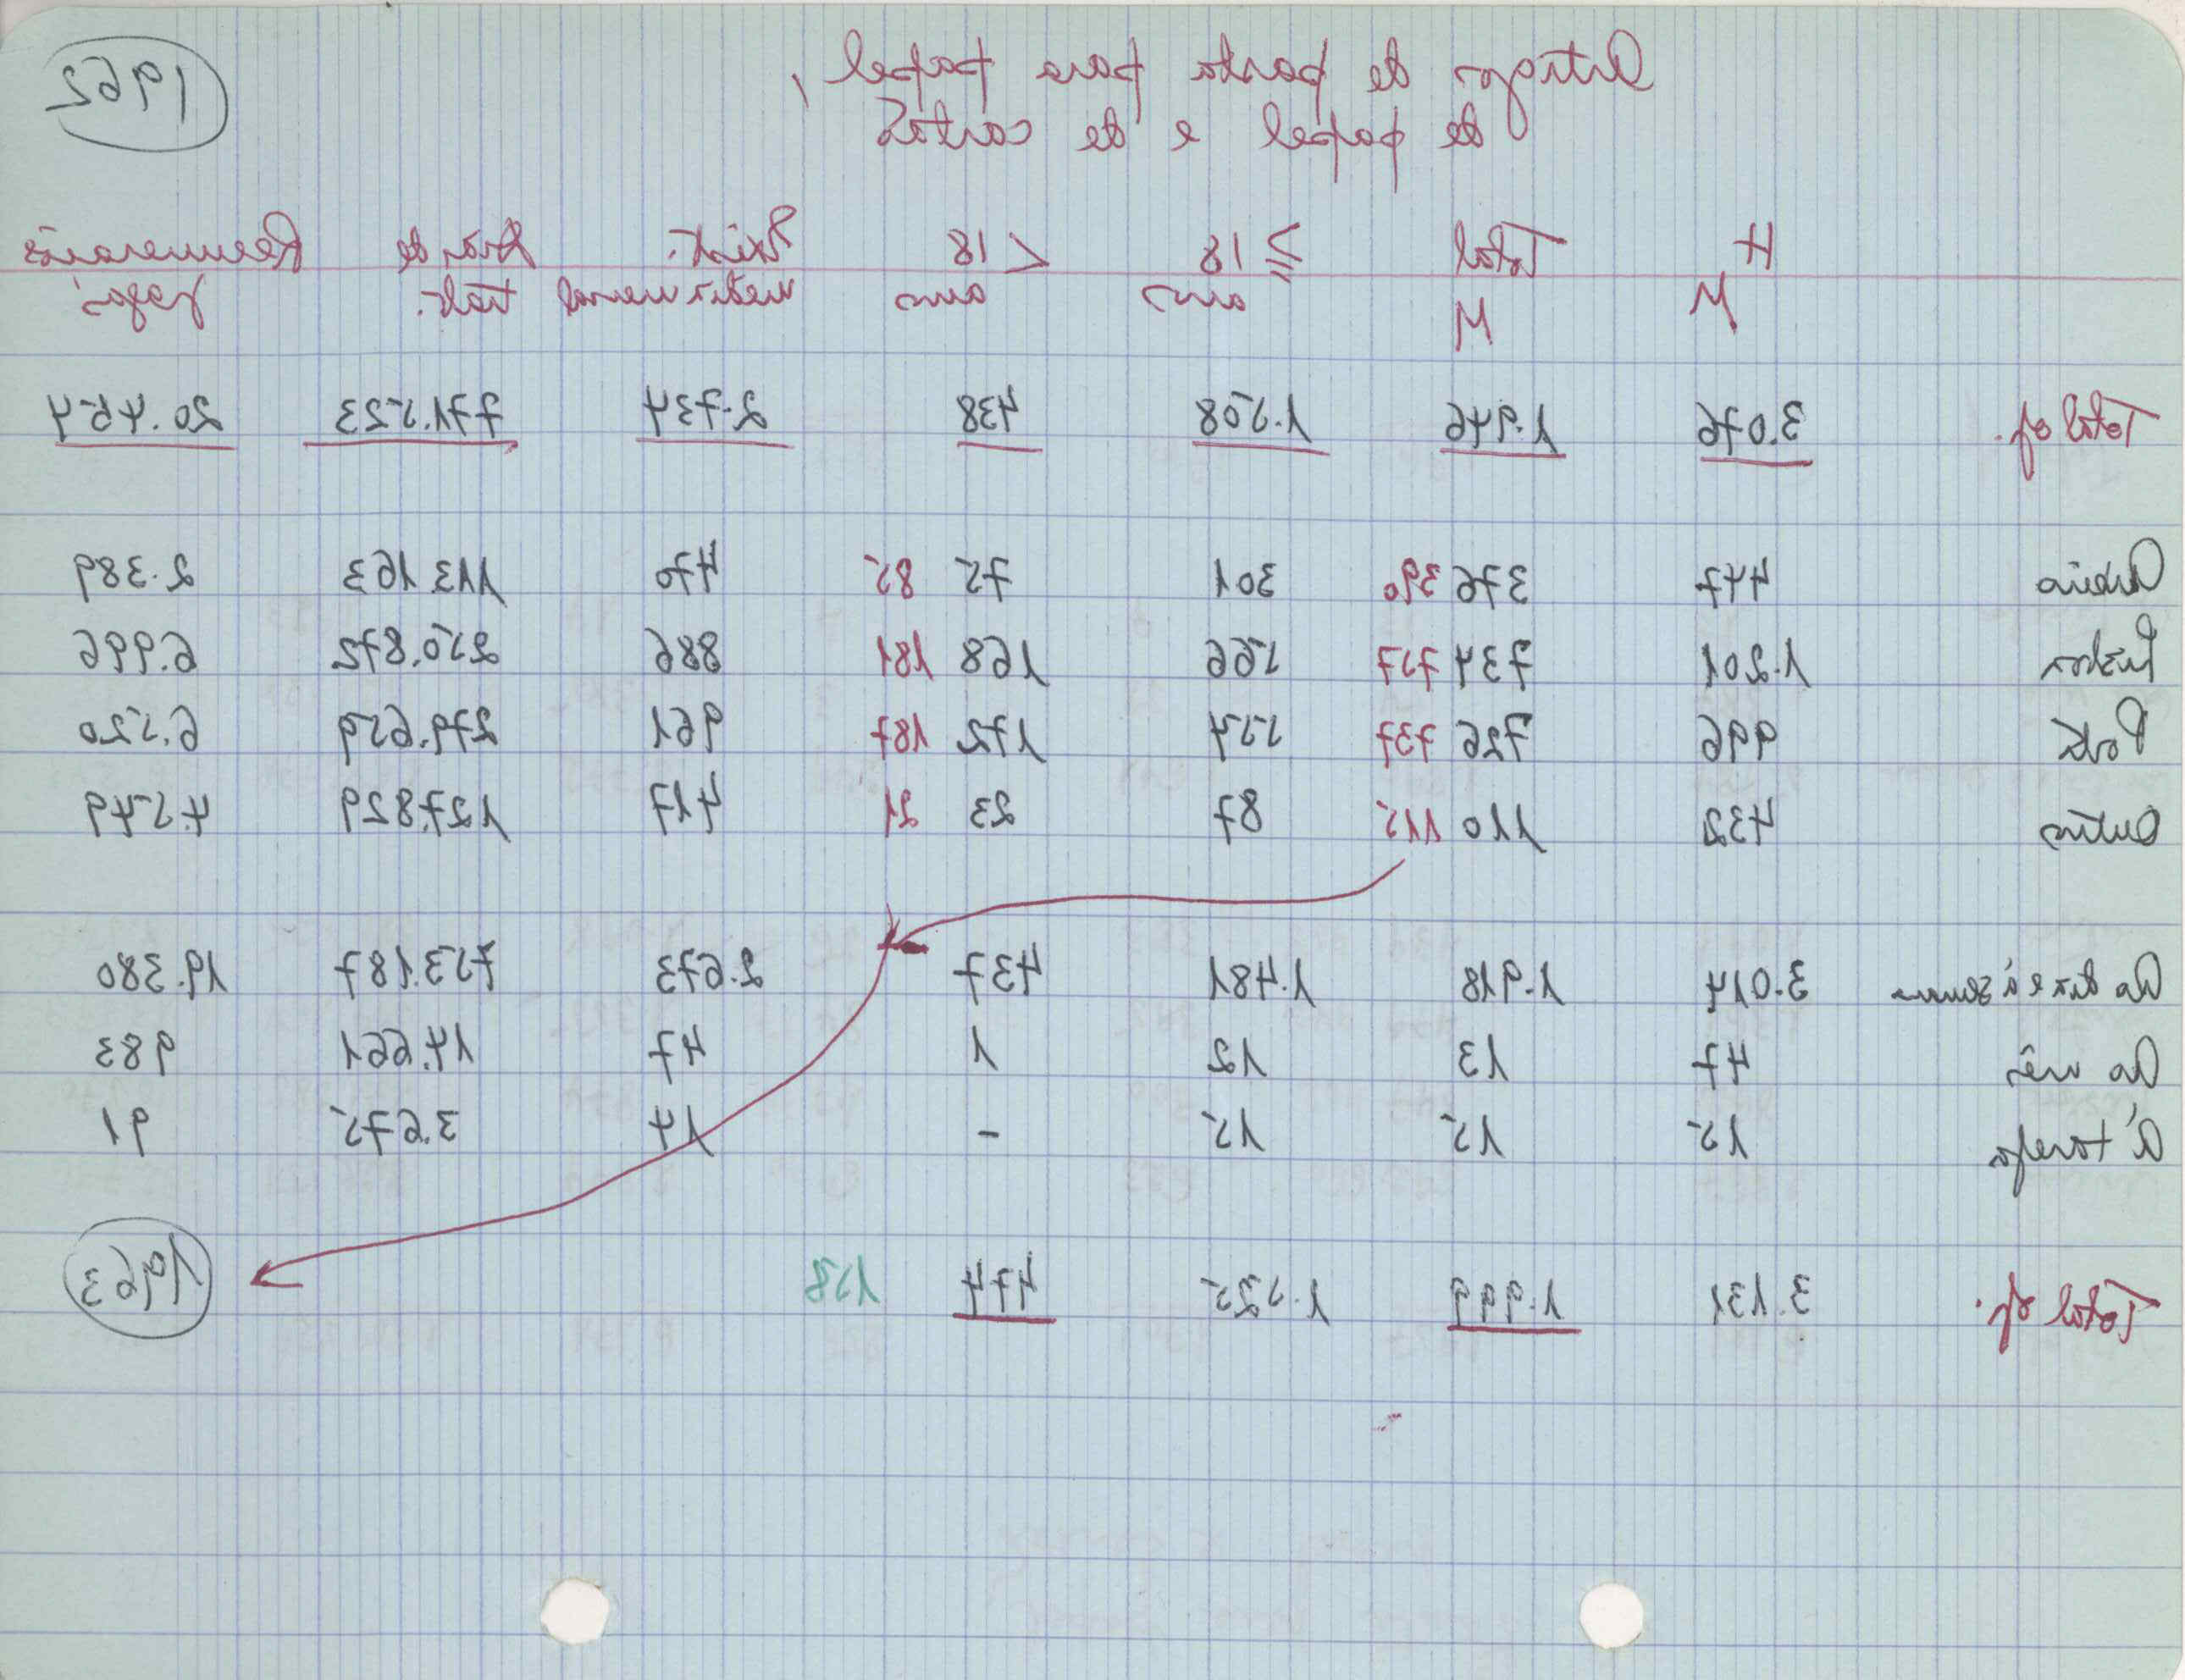 Artigos de pasta para papel, 1962
de papel e de cartão
H Total ≥ 18 < 18 Exist. Dias de Remunerações
M M anos anos média mensal trab. pagas
Total of. 3.076 1.946 1.508 438 2.734 771.523 20.454
Aveiro 447 376 390 301 75 85 470 113.163 2.389
Lisboa 1.201 734 757 566 168 181 886 250.872 6.996
Porto 996 726 737 554 172 187 961 279.659 6.520
Outros 432 110 115 87 23 21 417 127.829 4.549
Ao dia e à semana 3.014 1.918 1.481 437 2.673 753.187 19.380
Ao mês 47 13 12 1 47 14.661 983
À tarefa 15 15 15 - 14 3.675 91
Total of. 3.131 1.999 1.525 474 158 1963